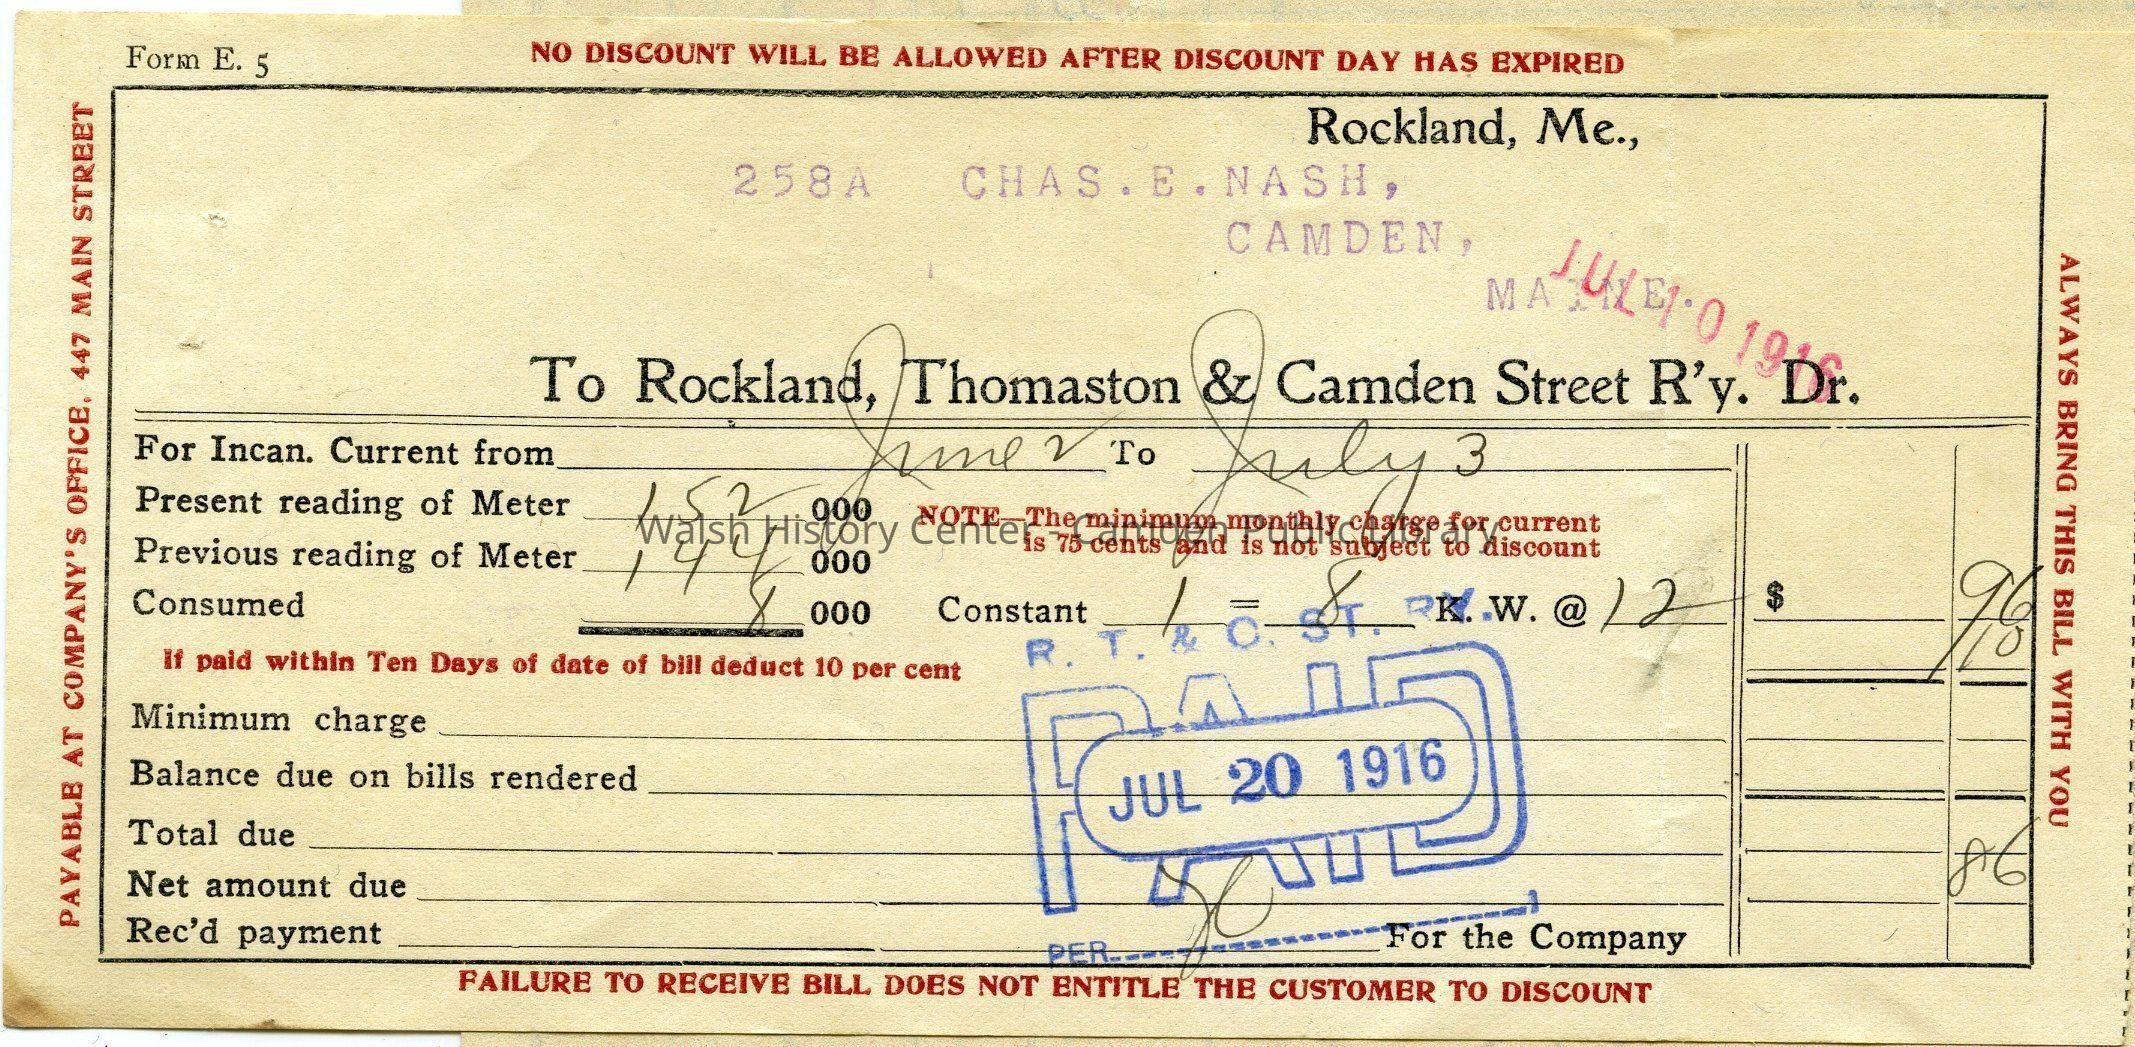 Form E. 5
NO DISCOUNT WILL BE ALLOWED AFTER DISCOUNT DAY HAS EXPIRED
PAYABLE AT COMPANY'S OFFICE, 447 MAIN STREET
Rockland, Me.,
258A CHAS.E.NASH,
CAMDEN,
MAINE.
JUL 10 1916
To Rockland, Thomaston & Camden Street R'y. Dr.
For Incan. Current from June 2 To July 3
Present reading of Meter 152 000
NOTE—The minimum monthly charge for current
is 75 cents and is not subject to discount
Walsh History Center, Camden Public Library
Previous reading of Meter 144 000
Consumed 8 000 Constant 1 = 8 K. W. @ 12 $ 96
10
If paid within Ten Days of date of bill deduct 10 per cent
R. T. & C. ST. RY.
PAID
JUL 20 1916
Minimum charge
Balance due on bills rendered
Total due
Net amount due 86
Rec'd payment
PER
For the Company
FAILURE TO RECEIVE BILL DOES NOT ENTITLE THE CUSTOMER TO DISCOUNT
ALWAYS BRING THIS BILL WITH YOU